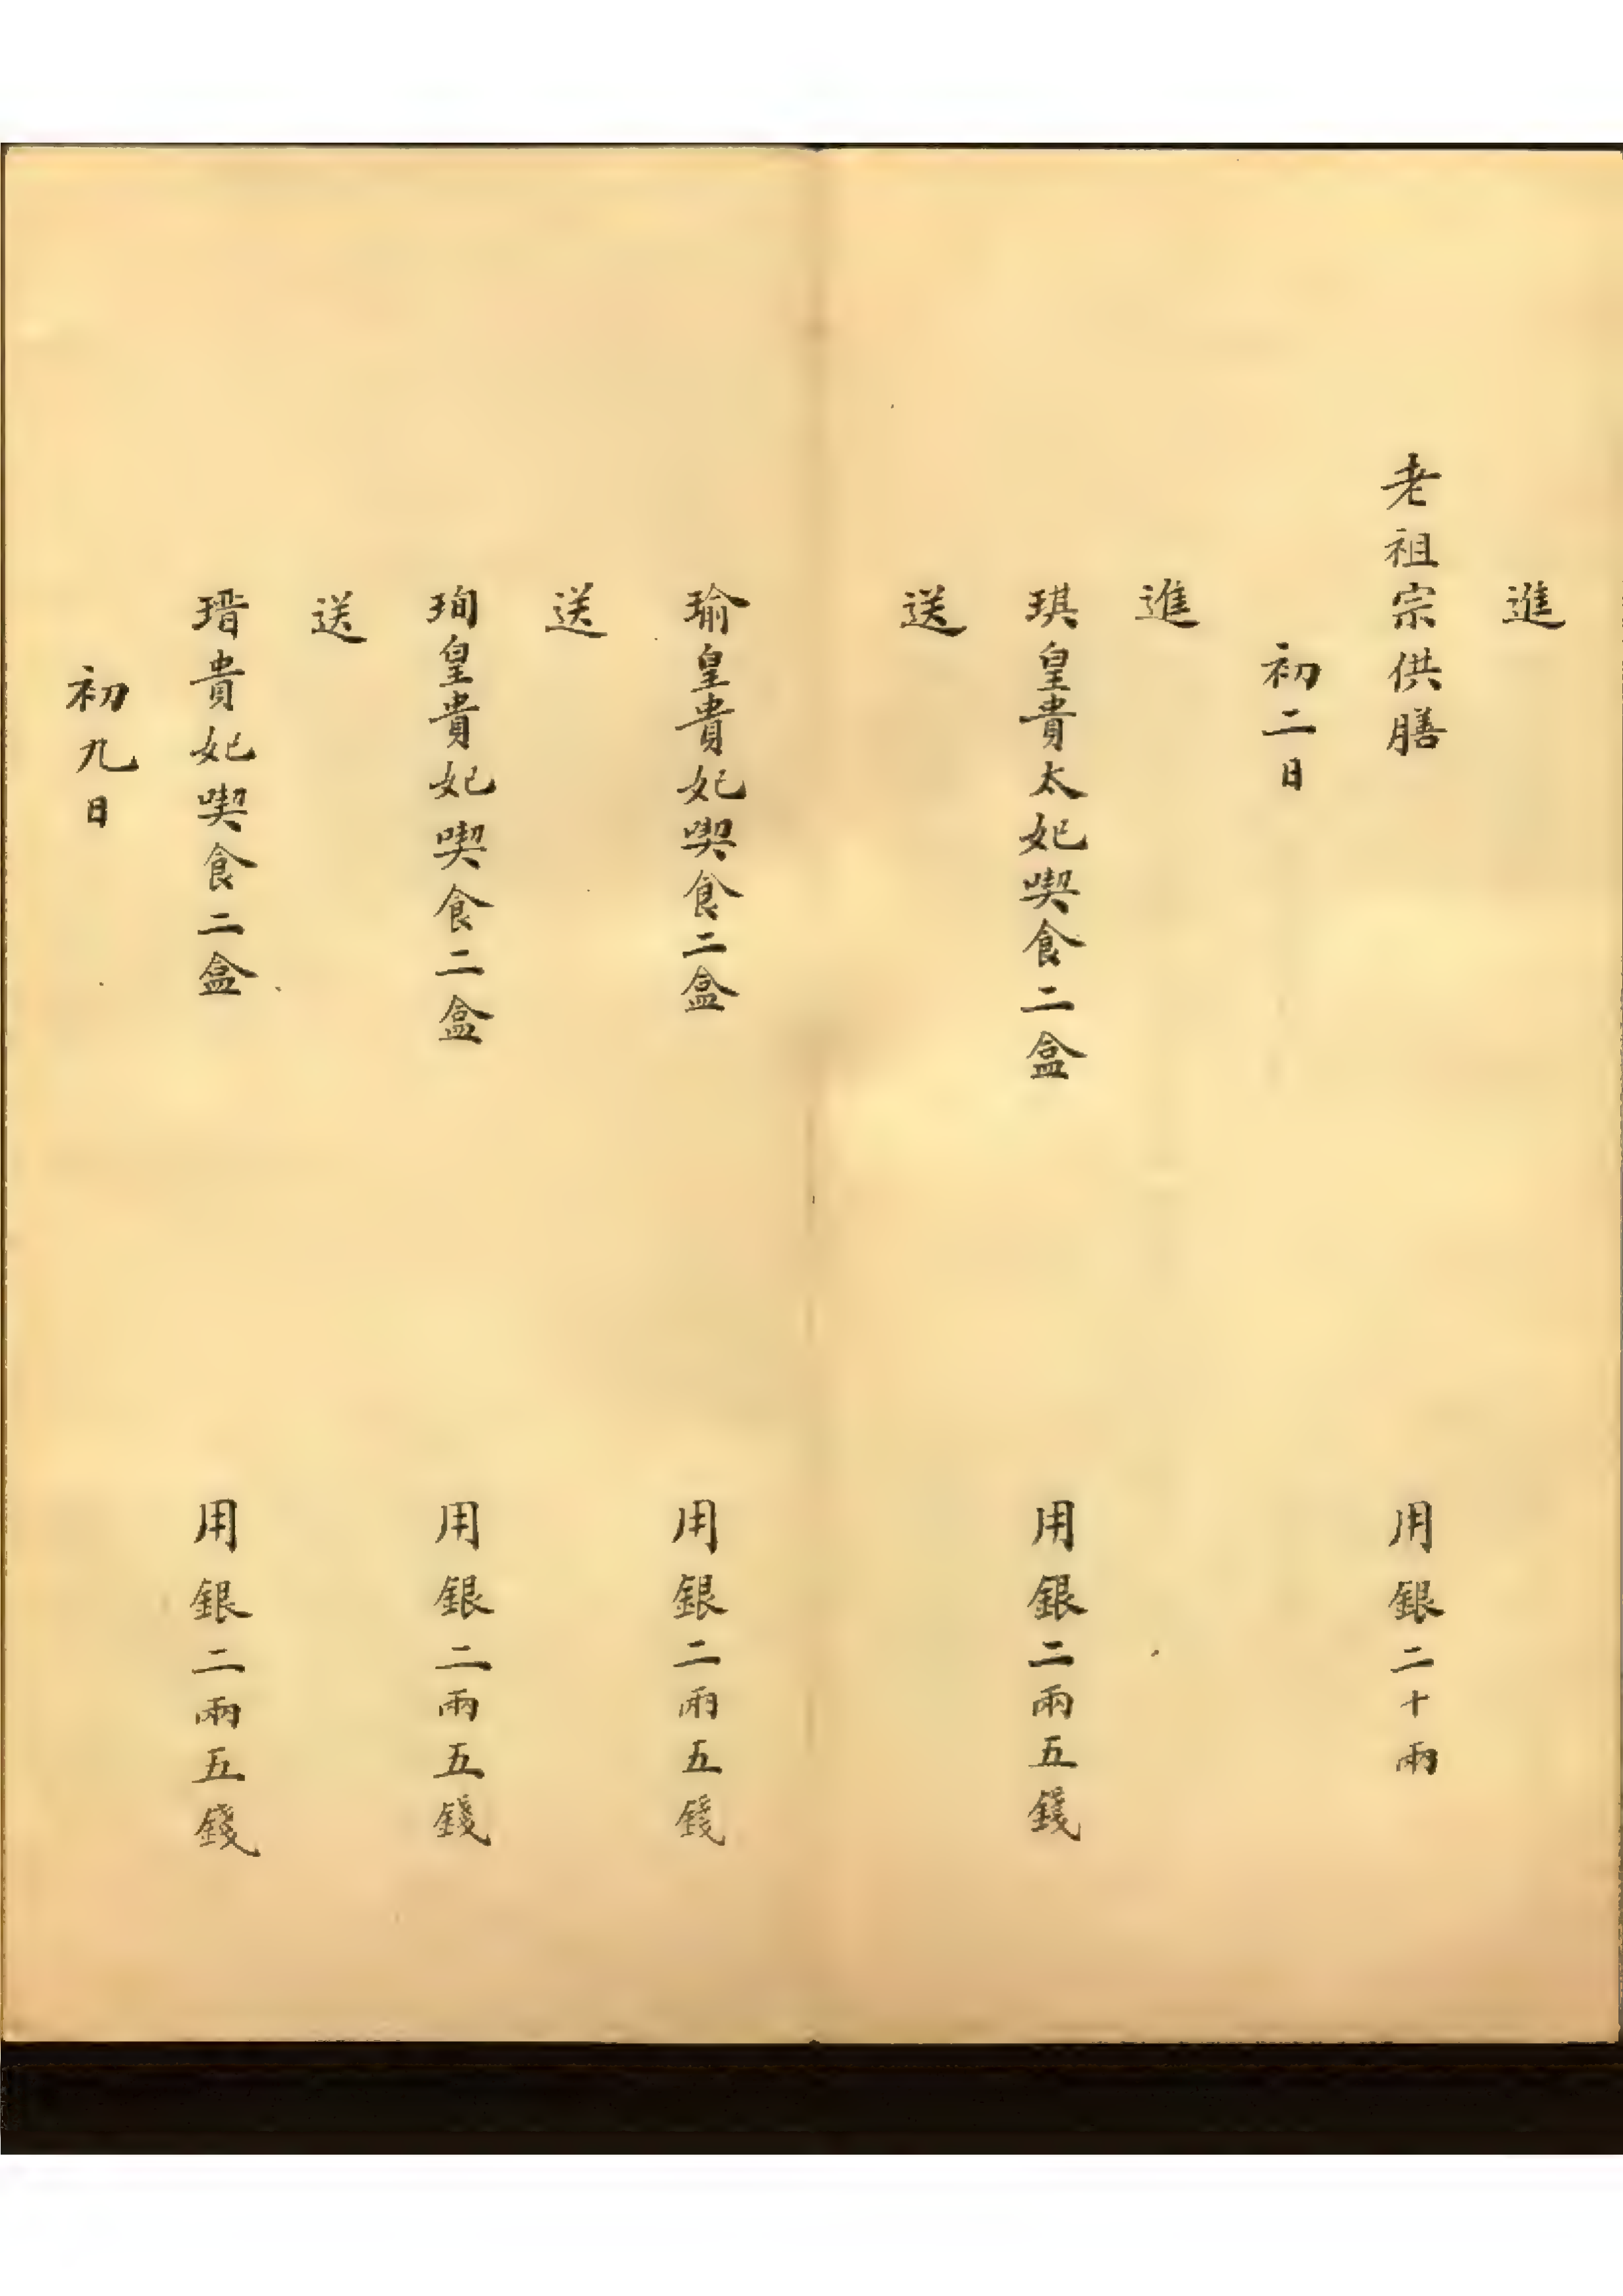 進
老祖宗供膳　用銀二十兩
初二日
進
琪皇貴太妃喫食二盒　用銀二兩五錢
送
瑜皇貴妃喫食二盒　用銀二兩五錢
送
珣皇貴妃喫食二盒　用銀二兩五錢
送
瑨貴妃喫食二盒　用銀二兩五錢
初九日